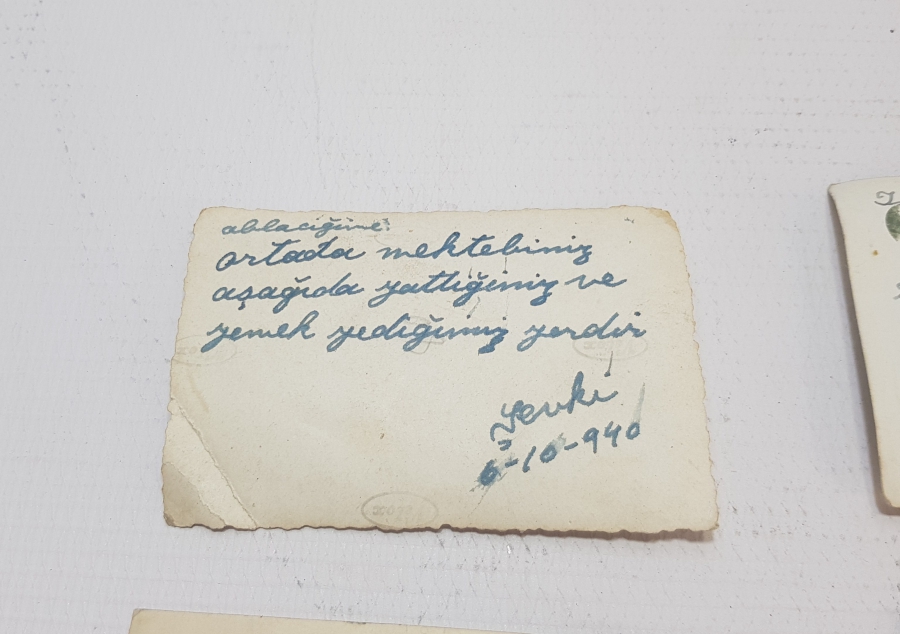 ablacığıme:
ortada mektebimiz
aşağıda yattığımız ve
yemek yediğimiz yerdir
Şevki
6-10-940